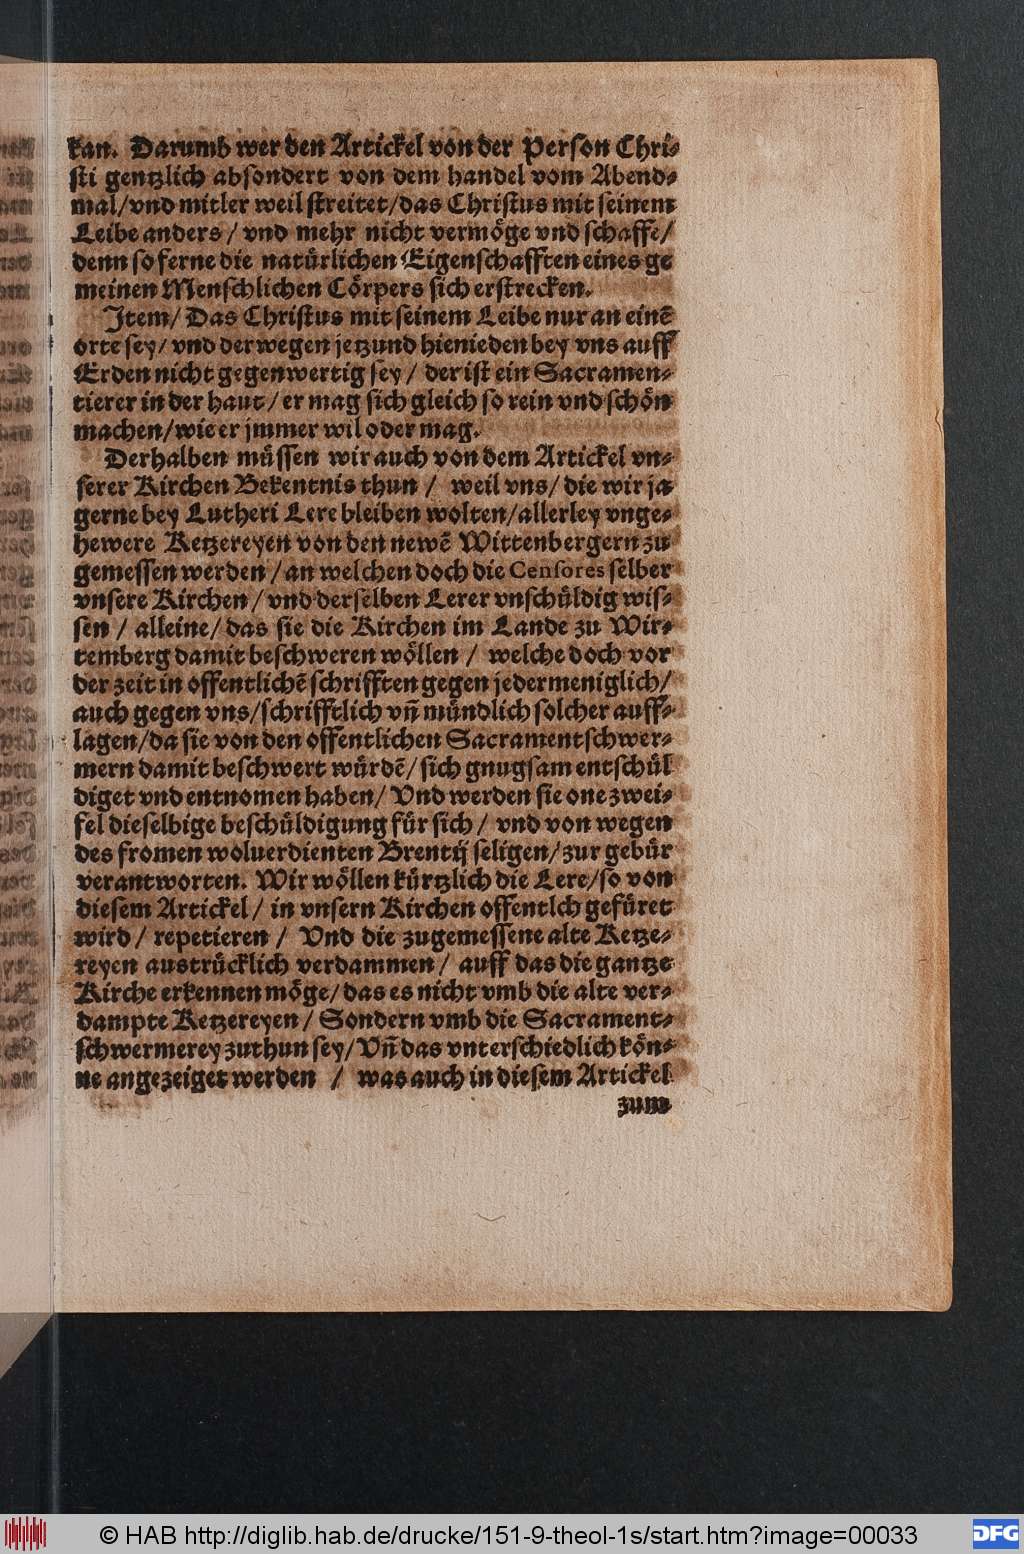 kan. Darumb wer den Artickel von der Person Chri-
sti gentzlich absondert von dem handel vom Abend-
mal/vnd mitler weil streitet/das Christus mit seinem
Leibe anders/ vnd mehr nicht vermöge vnd schaffe/
denn so ferne die natürlichen Eigenschafften eines ge
meinen Menschlichen Cörpers sich erstrecken.
Item/ Das Christus mit seinem Leibe nur an einē
orte sey/ vnd derwegen jetzund hienieden bey vns auff
Erden nicht gegenwertig sey/ der ist ein Sacramen-
tierer in der haut/er mag sich gleich so rein vnd schön
machen/wie er jmmer wil oder mag.
Derhalben müssen wir auch von dem Artickel vn-
serer Kirchen Bekentnis thun/ weil vns/ die wir ja
gerne bey Lutheri Lere bleiben wolten/allerley vnge-
hewere Ketzereyen von den newē Wittenbergern zu
gemessen werden/an welchen doch die Censores selber
vnsere Kirchen/ vnd derselben Lerer vnschüldig wis-
sen/ alleine/ das sie die Kirchen im Lande zu Wir-
temberg damit beschweren wöllen/ welche doch vor
der zeit in offentlichē schrifften gegen jedermeniglich/
auch gegen vns/schrifftlich vn̄ mündlich solcher auff-
lagen/da sie von den offentlichen Sacramentschwer-
mern damit beschwert würdē/ sich gnugsam entschül
diget vnd entnomen haben/ Vnd werden sie one zwei-
fel dieselbige beschüldigung für sich/ vnd von wegen
des fromen woluerdienten Brentij seligen/zur gebür
verantworten. Wir wöllen kürtzlich die Lere/so von
diesem Artickel/ in vnsern Kirchen offentlch gefüret
wird/ repetieren/ Vnd die zugemessene alte Ketze-
reyen austrücklich verdammen/ auff das die gantze
Kirche erkennen möge/das es nicht vmb die alte ver-
dampte Ketzereyen/ Sondern vmb die Sacrament-
schwermerey zuthun sey/Vn̄ das vnterschiedlich kön-
ne angezeiget werden/ was auch in diesem Artickel
zum
© HAB http://diglib.hab.de/drucke/151-9-theol-1s/start.htm?image=00033
DFG